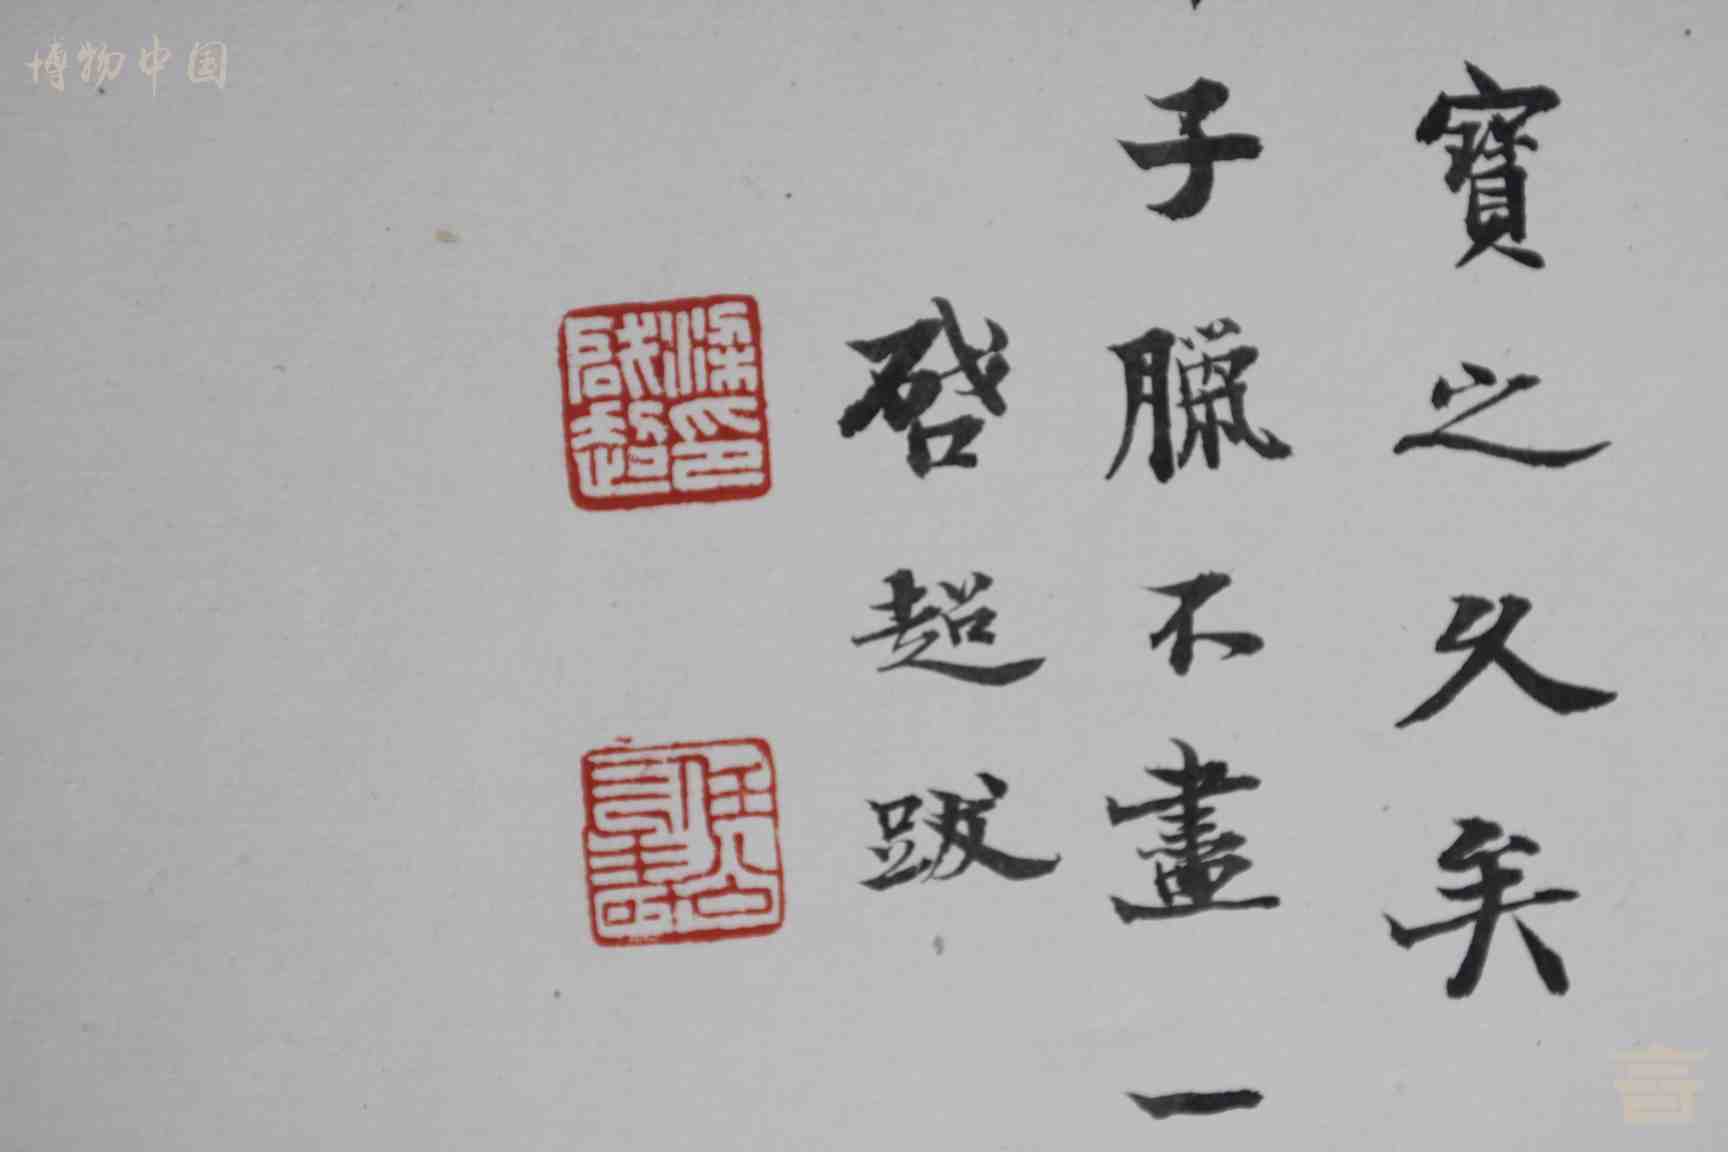 博物中国
寶之久矣
子臘不盡一
啓超跋
梁啟超印